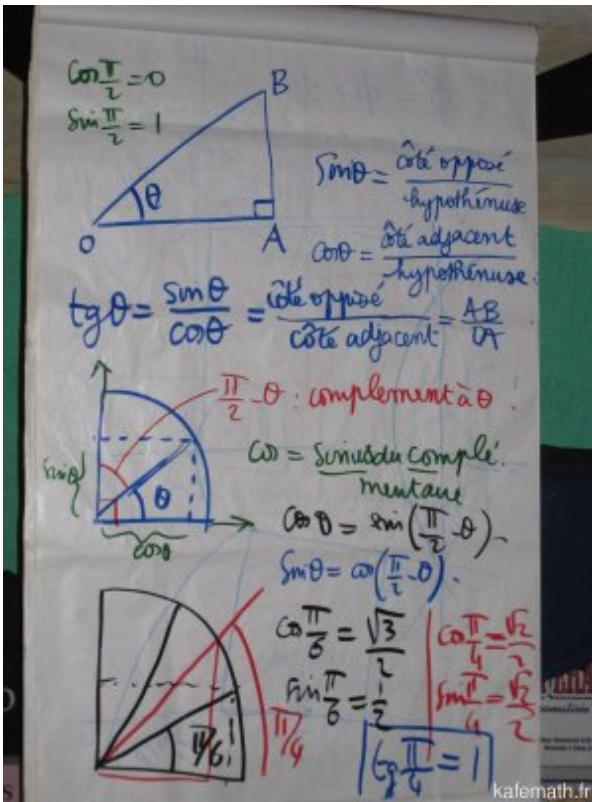 Cos π/2 = 0
Sin π/2 = 1
B
θ
O
A
Sinθ = côté opposé / hypothénuse
cosθ = côté adjacent / hypothénuse.
tgθ = sinθ / cosθ = côté opposé / côté adjacent = AB / OA
π/2 - θ : complement à θ.
sinθ
θ
cosθ
Cos = sinus du complé.
mentaire
Cos θ = sin(π/2 - θ).
Sinθ = cos(π/2 - θ).
cos π/6 = √3/2
sin π/6 = 1/2
cos π/4 = √2/2
sin π/4 = √2/2
π/6
π/4
tg π/4 = 1
kafemath.fr